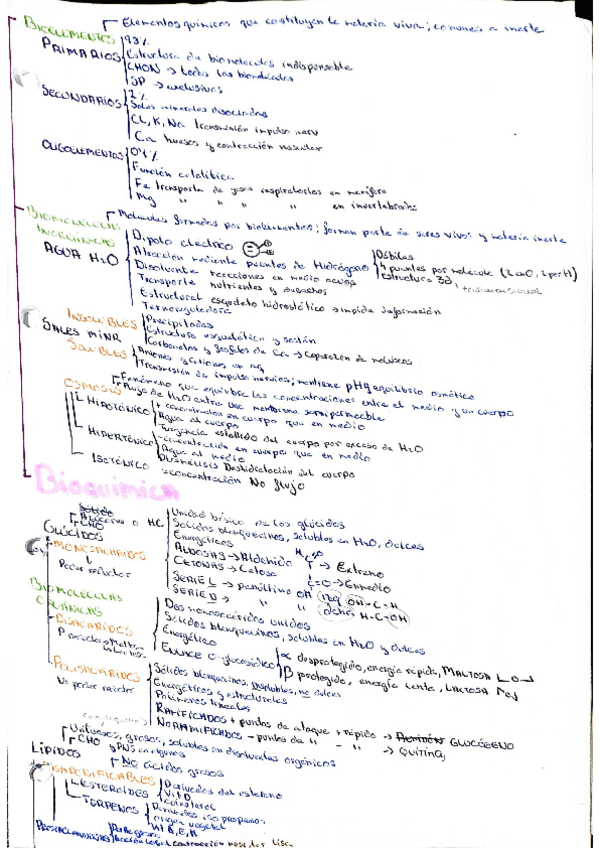 Elementos químicos que constituyen la materia viva; comunes a inerte
BIOELEMENTOS
PRIMARIOS
98%
Estructura de biomoleculas indispensable
CHON → todas las biomoléculas
SP → exclusivos
SECUNDARIOS
2%
Sales minerales disociadas
CL, K, Na transmisión impulso nerv
Ca huesos y contracción muscular
OLIGOELEMENTOS
0'1%
Función catalítica
Fe transporte de gases respiratorios en mamíferos
Mg " " " " en invertebrados
BIOMOLÉCULAS
INORGÁNICAS
Moléculas formadas por bioelementos; forman parte de seres vivos y materia inerte
AGUA H2O
Dipolo electrico
Atracción mediante puentes de Hidrógeno
Débiles
4 puentes por molécula (2 en O, 1 por H)
Estructura 3D, tridimensional
Disolvente reacciones en medio acuoso
Transporte nutrientes y desechos
Estructural esqueleto hidrostático → impide deformación
Termorreguladora
SALES MINR
INSOLUBLES
Precipitadas
Estructura esquelética y sostén
Carbonatos y fosfatos de Ca → Caparazón de moluscos
SOLUBLES
Aniones y cationes en aq
Transmisión de impulso nervioso; mantiene pH y equilibrio osmótico
OSMOSIS
Fenómeno que equilibra las concentraciones entre el medio y un cuerpo
Flujo de H2O entre una membrana semipermeable
HIPOTÓNICO
+ concentración en cuerpo que en medio
Agua al cuerpo
Turgencia estallido del cuerpo por exceso de H2O
HIPERTÓNICO
- concentración en cuerpo que en medio
Agua al medio
Plasmólisis Deshidratación del cuerpo
ISOTÓNICO = concentración No flujo
Bioquímica
Azúcares o HC
CHO
GLÚCIDOS
MONOSACÁRIDOS
Poder reductor
Unidad básica de los glúcidos
Sólidos blanquecinos, solubles en H2O, dulces
Energéticos
ALDOSAS → Aldehído → Extremo
CETONAS → Cetosa C=O → En medio
SERIE L → penúltimo OH izq OH-C-H
SERIE D → " " dcha H-C-OH
BIOMOLÉCULAS
ORGÁNICAS
DISACÁRIDOS
Dos monosacáridos unidos
Sólidos blanquecinos, solubles en H2O y dulces
Energético
ENLACE O-glucosídico
α desprotegido, energía rápida, MALTOSA
β protegido, energía lenta, LACTOSA
POLISACÁRIDOS
No poder reductor
Sólidos blanquecinos, insolubles, no dulces
Energéticos y estructurales
Polímeros lineales
RAMIFICADOS + puntos de ataque + rápido → GLUCÓGENO
NO RAMIFICADOS - puntos de " - " → QUITINA
Untuosos, grasos, solubles en disolventes orgánicos
CHO y PNS en algunos
LÍPIDOS
No ácidos grasos
INSAPONIFICABLES
ESTEROIDES
Derivados del esterano
Vit D
Colesterol
TERPENOS
Derivados isoprenos
Origen vegetal
Vit A, E, K
PROSTAGLANDINAS